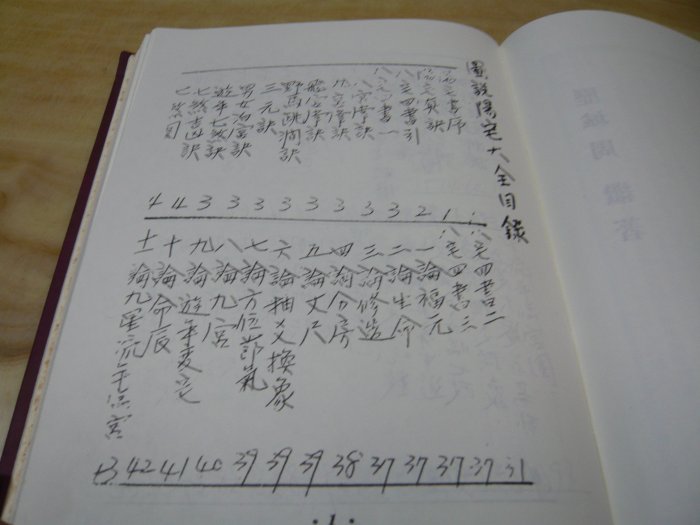 圖說陽宅大全目錄
宅書序 1
宅真訣 1
八宅四書引 2
八宅四書一 3
八宅掌訣 3
九宮掌訣 3
掌訣 3
野馬跳澗訣 3
三元訣 3
男女宮訣 3
遊年七煞訣 3
七煞吉凶訣 4
七煞 4
八宅四書二 31
八宅四書三 37
一論福元 37
二論生命 37
三論修造 37
四論分房 38
五論丈尺 39
六論抽爻換象 39
七論方位節氣 39
八論九宮 40
九論遊年变宅 41
十論命辰 42
十一論九星流年宮 43
·1·